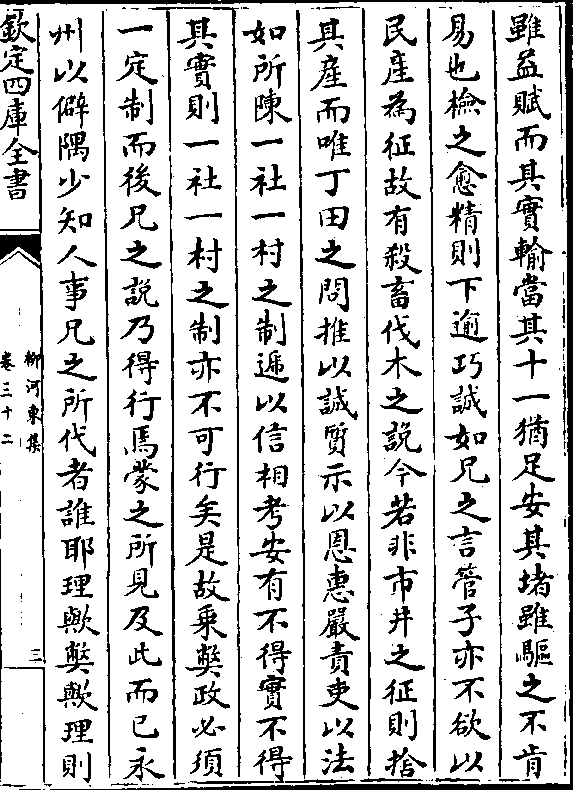 雖益賦而其實輸當其十一猶足安其堵雖驅之不肯
易也檢之愈精則下逾巧誠如兄之言管子亦不欲以
民產為征故有殺畜伐木之說今若非市井之征則捨
其產而唯丁田之問推以誠質示以恩惠嚴責吏以法
如所陳一社一村之制遞以信相考安有不得實不得
其實則一社一村之制亦不可行矣是故乘弊政必須
一定制而後兄之說乃得行焉蒙之所見及此而已永
州以僻隅少知人事兄之所代者誰耶理歟弊歟理則
欽定四庫全書
柳河東集
卷三十二
三